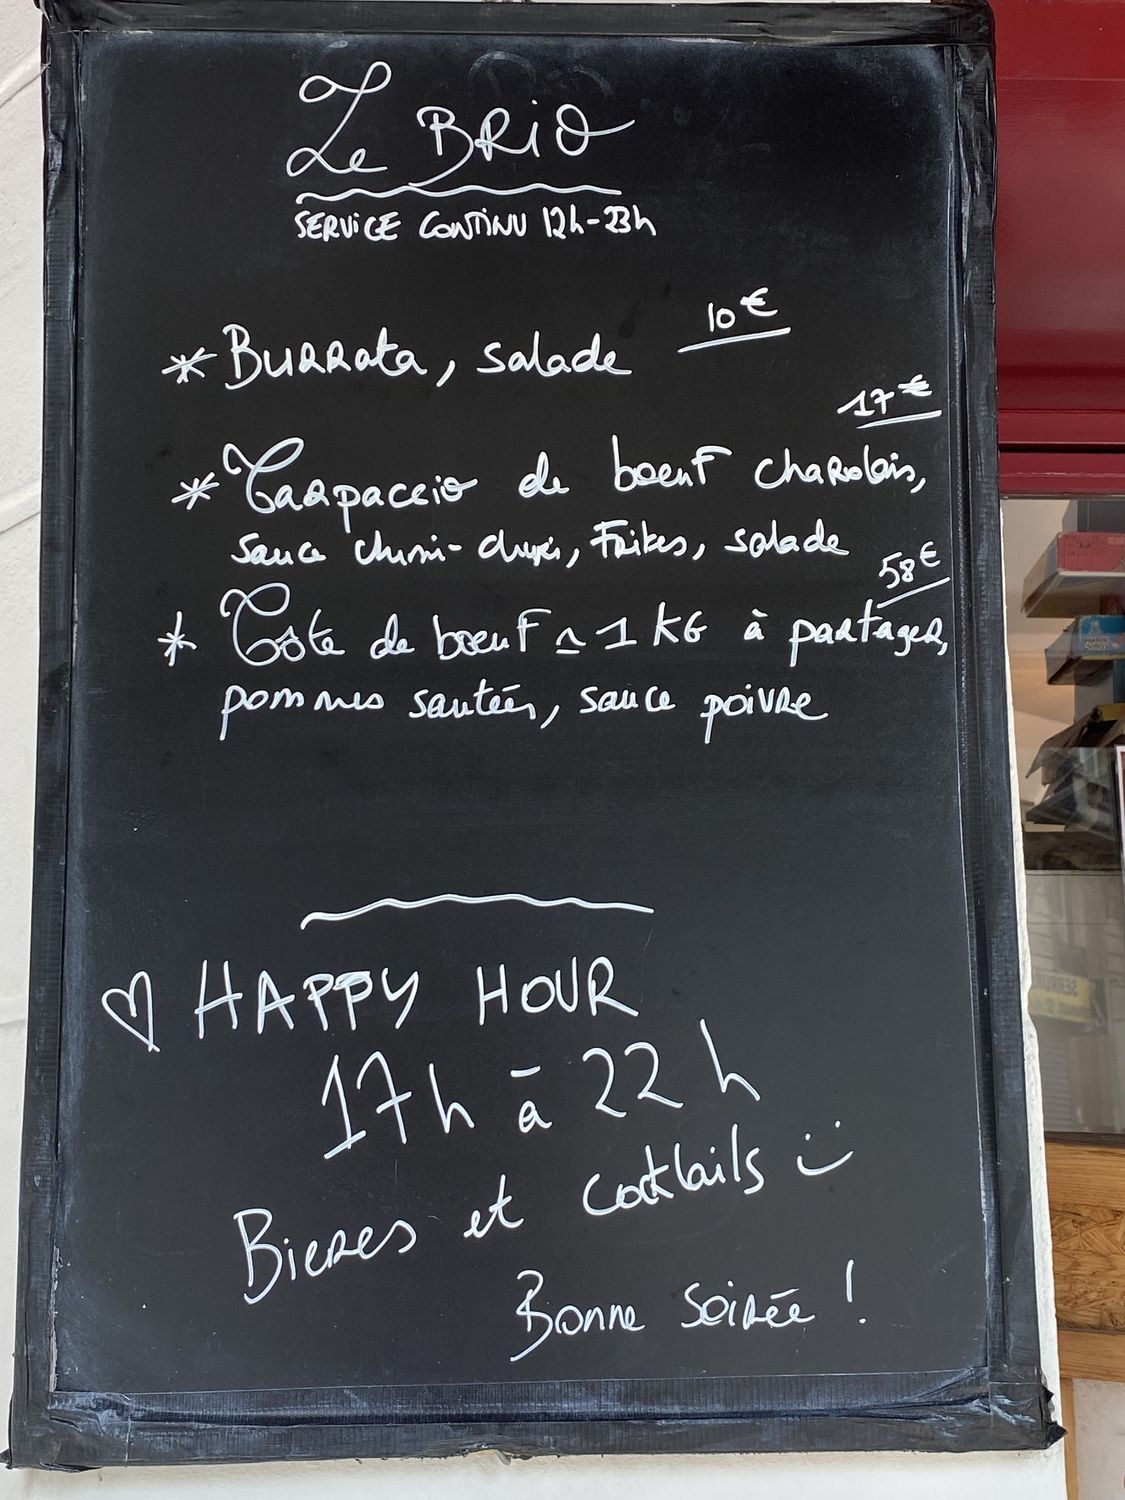 Le BRiO
SERViCE CONTiNU 12h-23h
* BURRata, salade 10€
17€
* Carpaccio de bœuf charolais,
sauce chimi-churri, Frites, salade
58€
* Côte de bœuf ≃ 1 KG à partager,
pommes sautées, sauce poivre
♡ HAPPY HOUR
17h à 22h
Bieres et cocktails :)
Bonne soirée !